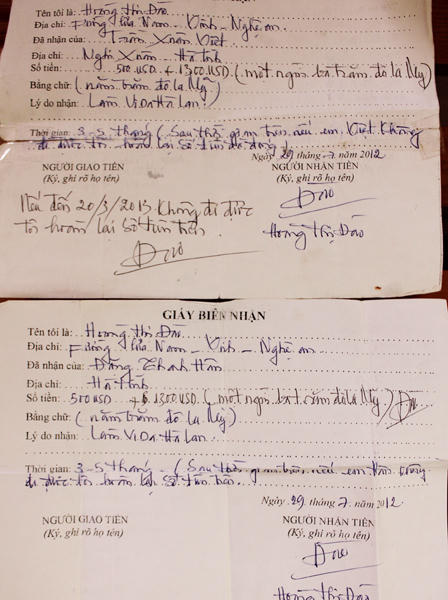 Tên tôi là: Hoàng Thị Đào
Địa chỉ: Phường Cửa Nam - Vinh - Nghệ an
Đã nhận của: Trần Xuân Việt
Địa chỉ: Nghi Xuân - Hà tĩnh
Số tiền: 500 USD + 1300 USD (một ngàn ba trăm đô la Mỹ)
Bằng chữ: (năm trăm đô la Mỹ)
Lý do nhận: Làm ViDa Hà Lan
Thời gian: 3-5 tháng (Sau thời gian trên nếu em Việt Không
đi được tôi hoàn lại số tiền đó
Ngày 29 tháng 7 năm 2012
NGƯỜI GIAO TIỀN
(Ký, ghi rõ họ tên)
NGƯỜI NHẬN TIỀN
(Ký, ghi rõ họ tên)
Đào
Hoàng Thị Đào
Nếu đến 20/3/2013 không đi được
tôi hoàn lại số tiền trên
Đào
GIẤY BIÊN NHẬN
Tên tôi là: Hoàng Thị Đào
Địa chỉ: Phường Cửa Nam - Vinh - Nghệ an
Đã nhận của: Đặng Thanh Hân
Địa chỉ: Hà tĩnh
Số tiền: 500 USD + 1300 USD (một ngàn ba trăm đô la Mỹ) Đào
Bằng chữ: (năm trăm đô la Mỹ)
Lý do nhận: Làm ViDa Hà Lan
Thời gian: 3-5 tháng - (Sau thời gian trên nếu em Hân không
đi được tôi hoàn lại số tiền trên
Ngày 29 tháng 7 năm 2012
NGƯỜI GIAO TIỀN
(Ký, ghi rõ họ tên)
NGƯỜI NHẬN TIỀN
(Ký, ghi rõ họ tên)
Đào
Hoàng Thị Đào